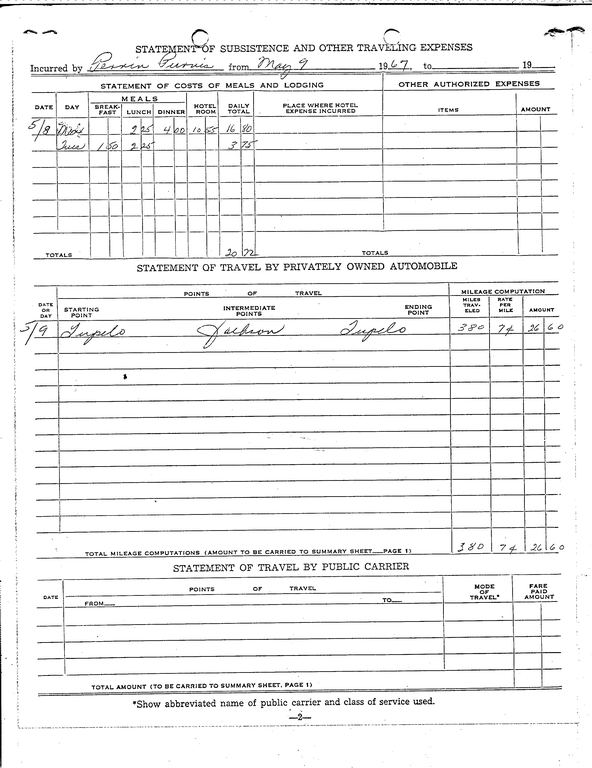 STATEMENT OF SUBSISTENCE AND OTHER TRAVELING EXPENSES
Incurred by Perrin Purvis from May 9 1967. to 19
STATEMENT OF COSTS OF MEALS AND LODGING OTHER AUTHORIZED EXPENSES
DATE DAY MEALS BREAK-FAST LUNCH DINNER HOTEL ROOM DAILY TOTAL PLACE WHERE HOTEL EXPENSE INCURRED ITEMS AMOUNT
5/8 Mon 2 25 4 00 10 55 16 80
Tues 1 50 2 25 3 75
TOTALS 20 72 TOTALS
STATEMENT OF TRAVEL BY PRIVATELY OWNED AUTOMOBILE
POINTS OF TRAVEL MILEAGE COMPUTATION
DATE OR DAY STARTING POINT INTERMEDIATE POINTS ENDING POINT MILES TRAV-ELED RATE PER MILE AMOUNT
5/9 Tupelo Jackson Tupelo 380 7¢ 26 60
TOTAL MILEAGE COMPUTATIONS (AMOUNT TO BE CARRIED TO SUMMARY SHEET—PAGE 1) 380 7¢ 26 60
STATEMENT OF TRAVEL BY PUBLIC CARRIER
DATE POINTS OF TRAVEL MODE OF TRAVEL* FARE PAID AMOUNT
FROM— TO—
TOTAL AMOUNT (TO BE CARRIED TO SUMMARY SHEET, PAGE 1)
*Show abbreviated name of public carrier and class of service used.
—2—